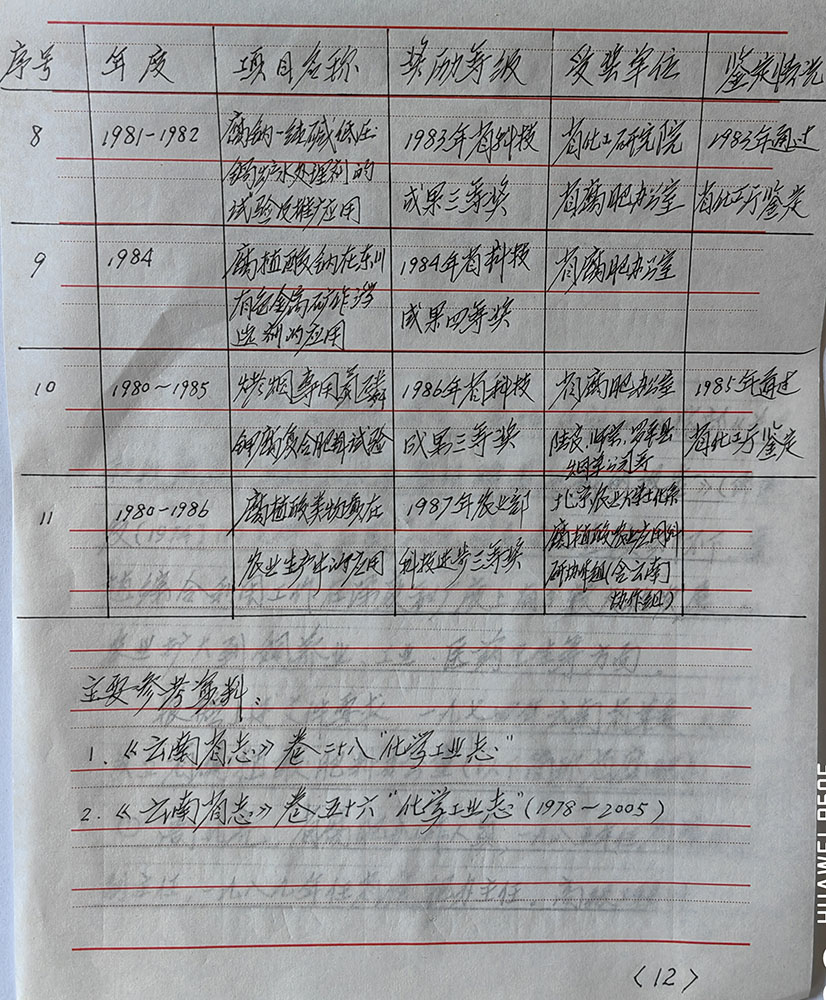 序号 年度 项目名称 奖励等级 受奖单位 鉴定情况
8 1981-1982 腐钠-纯碱低压 1983年省科技 省化工研究院 1983年通过
锅炉水处理剂的
成果三等奖 省腐肥办公室 省化工厅鉴定
试验及推广应用
9 1984 腐植酸钠在东川 1984年省科技 省腐肥办公室
有色金属矿作浮
成果四等奖
选剂的应用
10 1980~1985 烤烟专用氮磷 1986年省科技 省腐肥办公室 1985年通过
钾腐复合肥料试验 成果三等奖 陆良、师宗、罗平县 省化工厅鉴定
烟草公司等
11 1980-1986 腐植酸类物质在 1987年农业部 北京农业大学土化系
农业生产中的应用 科技进步三等奖 腐植酸农业应用科
研协作组(含云南
协作组)
主要参考资料:
1.《云南省志》卷二十八"化学工业志"
2.《云南省志》卷五十六"化学工业志"(1978~2005)
〈12〉